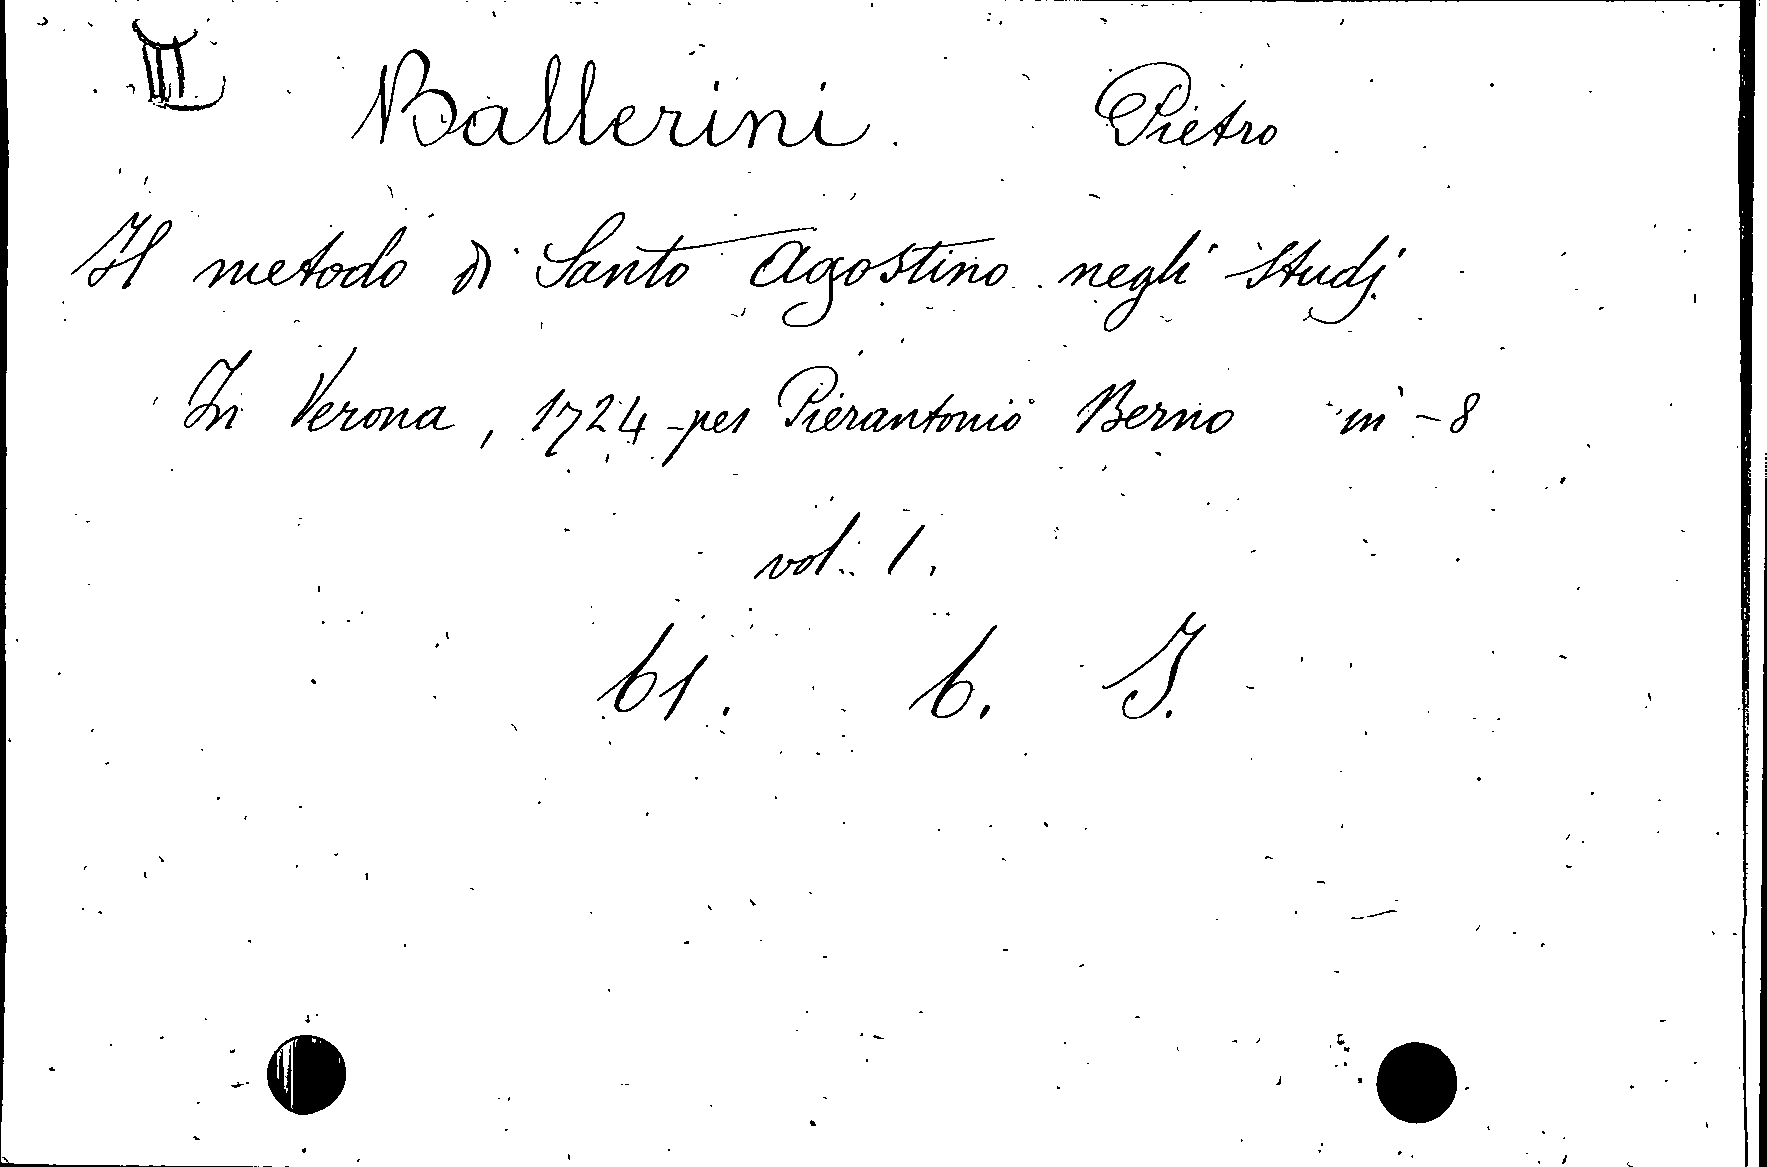 III Ballerini. Pietro
Il metodo di Santo Agostino negli Studj.
In Verona, 1724 per Pierantonio Berno in-8
vol. 1.
61. 6. I.